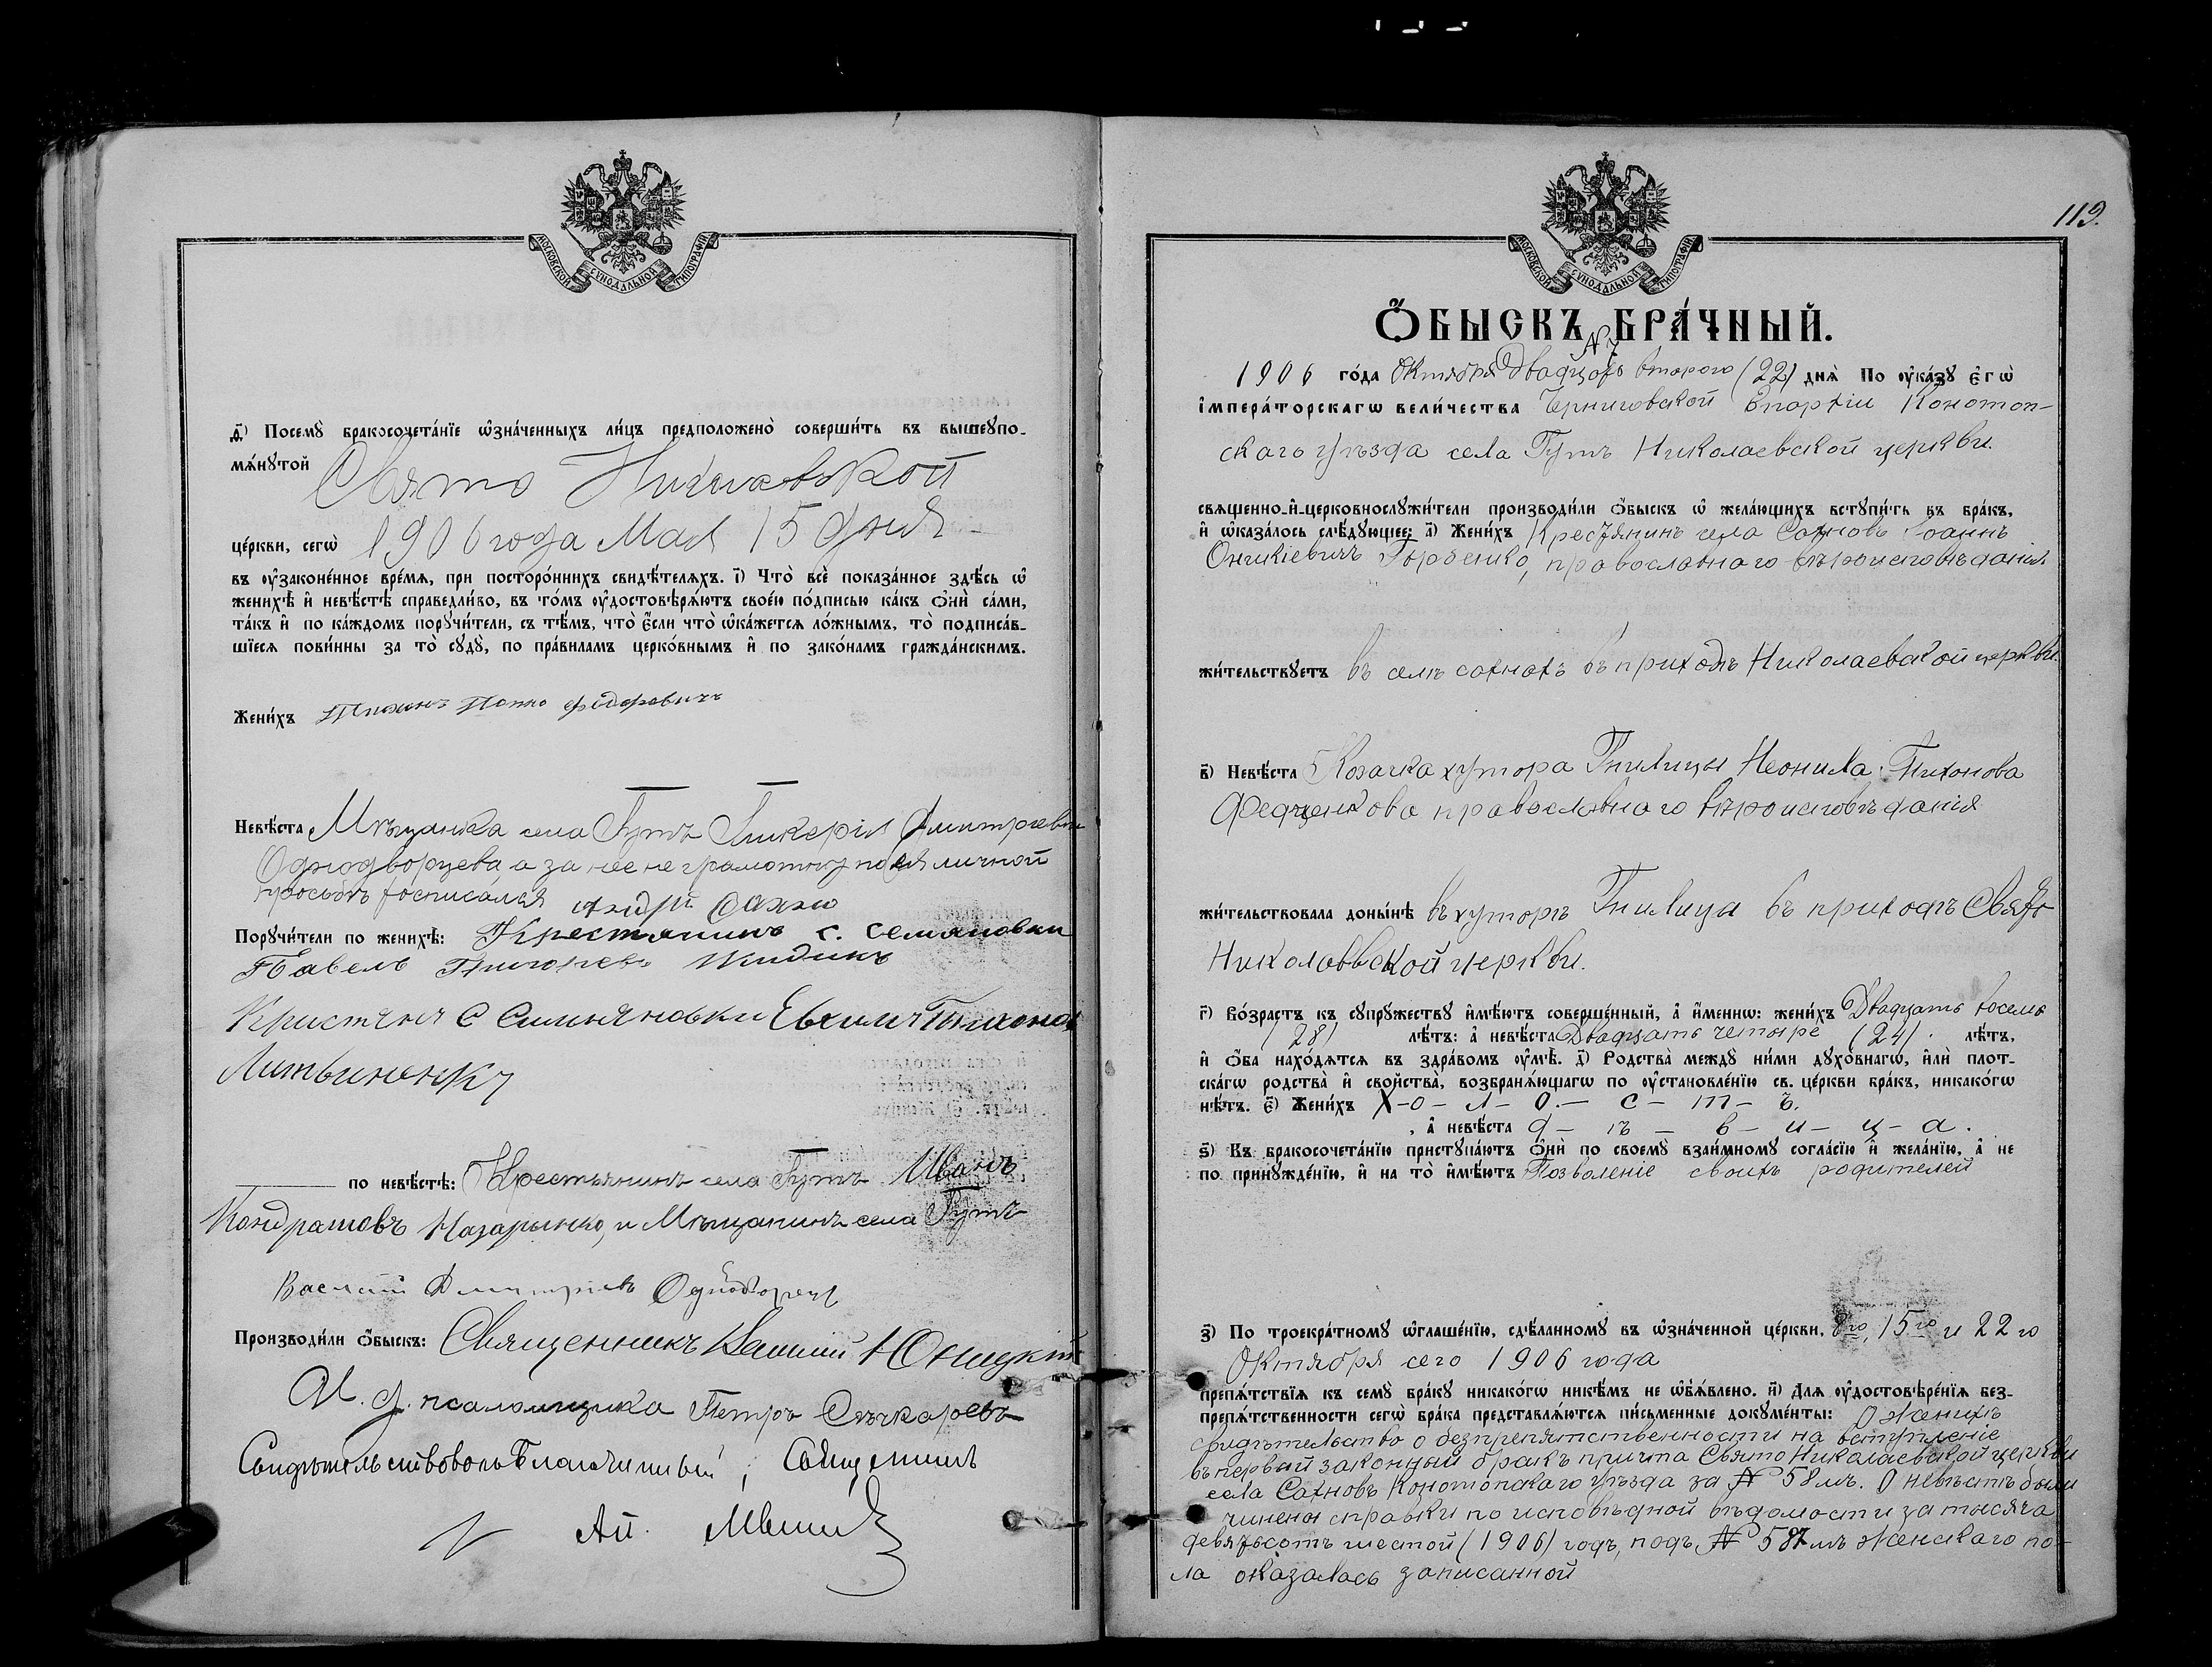 МОСКОВСКОЙ СѴНОДАЛЬНОЙ ТИПОГРАФІИ
ѳ҃) Посемꙋ̀ бракосочета́нїе ѡ҆зна́ченныхъ ли́цъ предположено̀ соверши́ть въ вышеꙋпо-
мѧ́нꙋтой Свято Николаевской
це́ркви, сегѡ̀ 1906 года Мая 15 дня
въ ᲂу҆законе́нное вре́мѧ, при посторо́ннихъ свидѣ́телѧхъ. і҃) Что̀ всѐ показа́нное здѣ́сь ѡ҆
женихѣ̀ и҆ невѣ́стѣ справедли́во, въ то́мъ ᲂу҆достовѣрѧ́ютъ свое́ю по́дписью ка́къ ѻ҆нѝ са́ми,
та́къ и҆ по ка́ждомъ порꙋчи́тели, съ тѣ́мъ, что̀ є҆́сли что̀ ѡ҆ка́жетсѧ ло́жнымъ, то̀ подписа́в-
шїесѧ пови́нны за то̀ сꙋдꙋ̀, по пра́виламъ церко́внымъ и҆ по зако́намъ гражда́нскимъ.
Жени́хъ Тихонъ Попко Федоровичъ
Невѣ́ста Мѣщанка села Гутъ Гликерія Дмитріева
Однодворцева, а за нее неграмотну по ея личной
просьбѣ росписался Андрей Сахно
Порꙋчи́тели по женихѣ̀: Крестянинъ с. Семяновки
Павелъ Григорьевъ Жидикъ
Кристянъ С Симияновки Евхимъ Тихоновъ
Литвиненку
по невѣ́стѣ: Крестьянинъ села Гутъ Иванъ
Кондратовъ Назарынко, и Мѣщанинъ села Гутъ
Василій Дмитріевъ Однодворецъ
Производи́ли ѻ҆́быскъ: Священникъ Василій Юницкій
И. д. псаломщика Петръ Слѣчкаревъ
Свидѣтельствовалъ Благочинный, Священникъ
МОСКОВСКОЙ СѴНОДАЛЬНОЙ ТИПОГРАФІИ
119.
Ѻ҆́БЫСКЪ БРА́ЧНЫЙ.
№ 7
1906 го́да Октября Двадцать второго (22) днѧ̀ По ᲂу҆ка́зꙋ є҆гѡ̀
і҆мпера́торскагѡ вели́чества Черниговской Епархіи Конотоп-
скаго уѣзда села Гутъ Николаевской церкви.
свѧщенно-и҆-церковнослꙋжи́тели производи́ли ѻ҆́быскъ ѡ҆ жела́ющихъ встꙋпи́ть въ бра́къ,
и҆ ѡ҆каза́лось слѣ́дꙋющее: а҃) Жени́хъ Крестянинъ села Сахновъ Іоаннъ
Оникіевичъ Горбенко, православнаго вѣроисповѣданія
жи́тельствꙋетъ въ селѣ сахнахъ въ приходѣ Николаевской церкви.
в҃) Невѣ́ста Козачка хутора Гнилицы Неонила Тихонова
Федченкова православнаго вѣроисповѣданія
жи́тельствовала доны́нѣ въ хуторѣ Гнилица въ приходѣ Свято
Николаевской церкви.
г҃) Во́зрастъ къ сꙋпрꙋ́жествꙋ и҆мѣ́ютъ соверше́нный, а҆ и҆́меннѡ: жени́хъ Двадцать восемь
(28) лѣ́тъ: а҆ невѣ́ста Двадцать четыре (24). лѣ́тъ,
и҆ ѻ҆́ба нахо́дѧтсѧ въ здра́вомъ ᲂу҆мѣ̀. д҃) Родства̀ междꙋ̀ ни́ми дꙋхо́внагѡ, и҆лѝ плот-
ска́гѡ родства̀ и҆ сво́йства̀, возбранѧ́ющагѡ по ᲂу҆становле́нїю св. це́ркви бра́къ, никако́гѡ
нѣ́тъ. є҃) Жени́хъ Х-о-л-о-с-т-ъ.
, а҆ невѣ́ста д-ѣ-в-и-ц-а.
ѕ҃) Къ бракосочета́нїю пристꙋпа́ютъ ѻ҆нѝ по своемꙋ̀ взаи́мномꙋ согла́сїю и҆ жела́нїю, а҆ не
по принꙋжде́нїю, и҆ на то̀ и҆мѣ́ютъ Позволеніе своихъ родителей
з҃) По троекра́тномꙋ ѡ҆глаше́нїю, сдѣ́ланномꙋ въ ѡ҆зна́ченной це́ркви, 8го, 15го и 22го
Октября сего 1906 года
препѧ́тствїѧ къ семꙋ̀ бра́кꙋ никако́гѡ никѣ́мъ не ѡ҆б̾ѧ́влено. и҃) Длѧ ᲂу҆достовѣре́нїѧ без-
препѧ́тственности сегѡ̀ бра́ка представлѧ́ютсѧ пи́сьменные докꙋме́нты: О женихѣ
свидѣтельство о безпрепятственности на вступленіе
въ первый законный бракъ причта Свято Николаевской церкви
села Сахновъ Конотопскаго уѣзда за № 58мъ. О невѣстѣ были
чинены справки по исповѣдной вѣдомости за тысяча
девятьсотъ шестой (1906) годъ, подъ № 587мъ женскаго по-
ла оказалась записанной